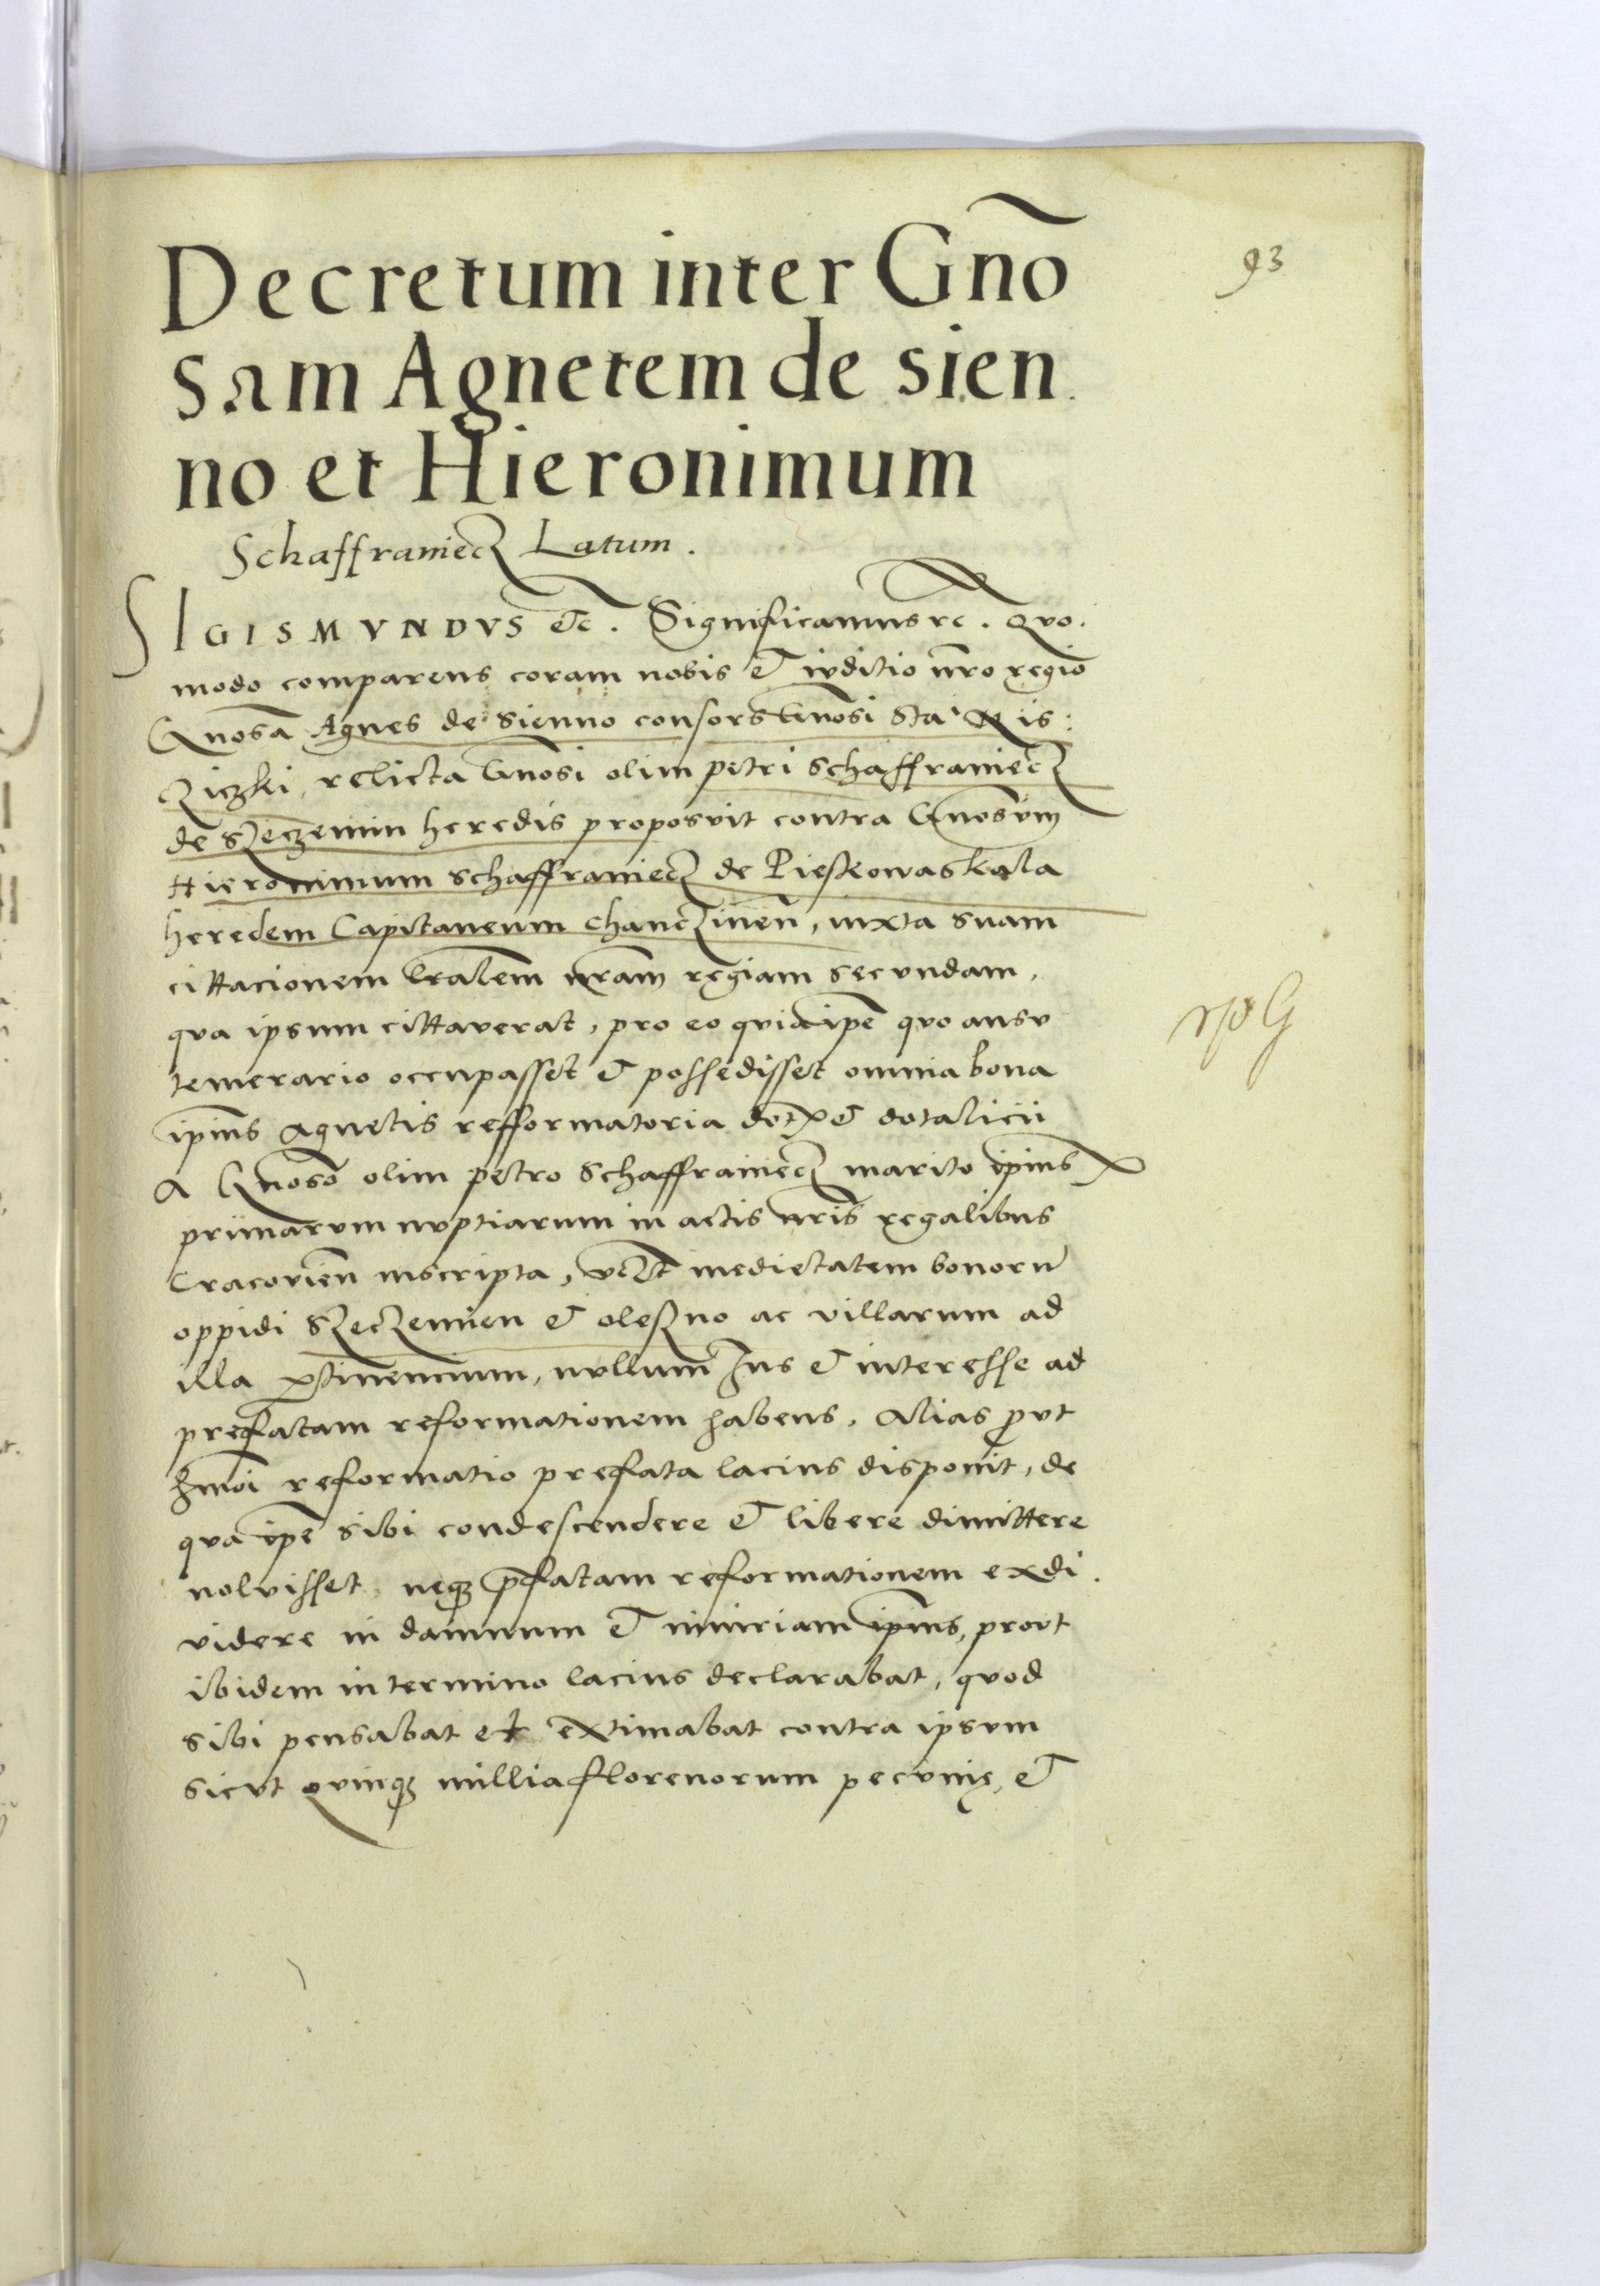 93
Decretum inter Gnõ
sam Agnetem de sien
no et Hieronimum
Schaffraniecz Latum.
SIGISMVNDVS etc. Significamus rc. Qvo.
modo comparens coram nobis et ivditio nr̃o regio
Gnosã Agnes de Sienno consors Gnosi Sta.
Ziczki, relicta Gnosi olim petri Schaffraniecz
de Szeczemin heredis proposvit contra Gnosvm
Hieronimum Schaffraniecz de Pieskowaskala
heredem Capitaneum Chanczinen̄, iuxta svam
cittacionem lr̃alem nr̃am regiam secvndam,
qva ipsum cittaverat, pro eo qvia ip̃e qvo ansv
temerario occupasset et possedisset omnia bona
ip̃ius Agnetis refformatoria et dotalicii
a Gnoso olim petro Schaffraniecz marito ip̃ius
primarvm nvptiarum in actis nr̃is regalibus
Cracovien̄ inscripta, medietatem bonorũ
oppidi Szeczemien et oleszno ac villarum ad
illa ꝑtinencium, nvllum Ius et interesse ad
prefatam reformationem habens. Alias ꝓvt
hm̃oi reformatio prefata lacius disponit, de
qva ip̃e sibi condescendere et libere dimittere
nolvisset neqꝫ p̃fatam reformationem exdi.
videre in damnum et iniuriam ip̃ius, provt
ibidem in termino lacius declarabat, qvod
sibi pensabat et extimabat contra ipsvm
sicvt qvinqꝫ millia florenorum pecvnię, et